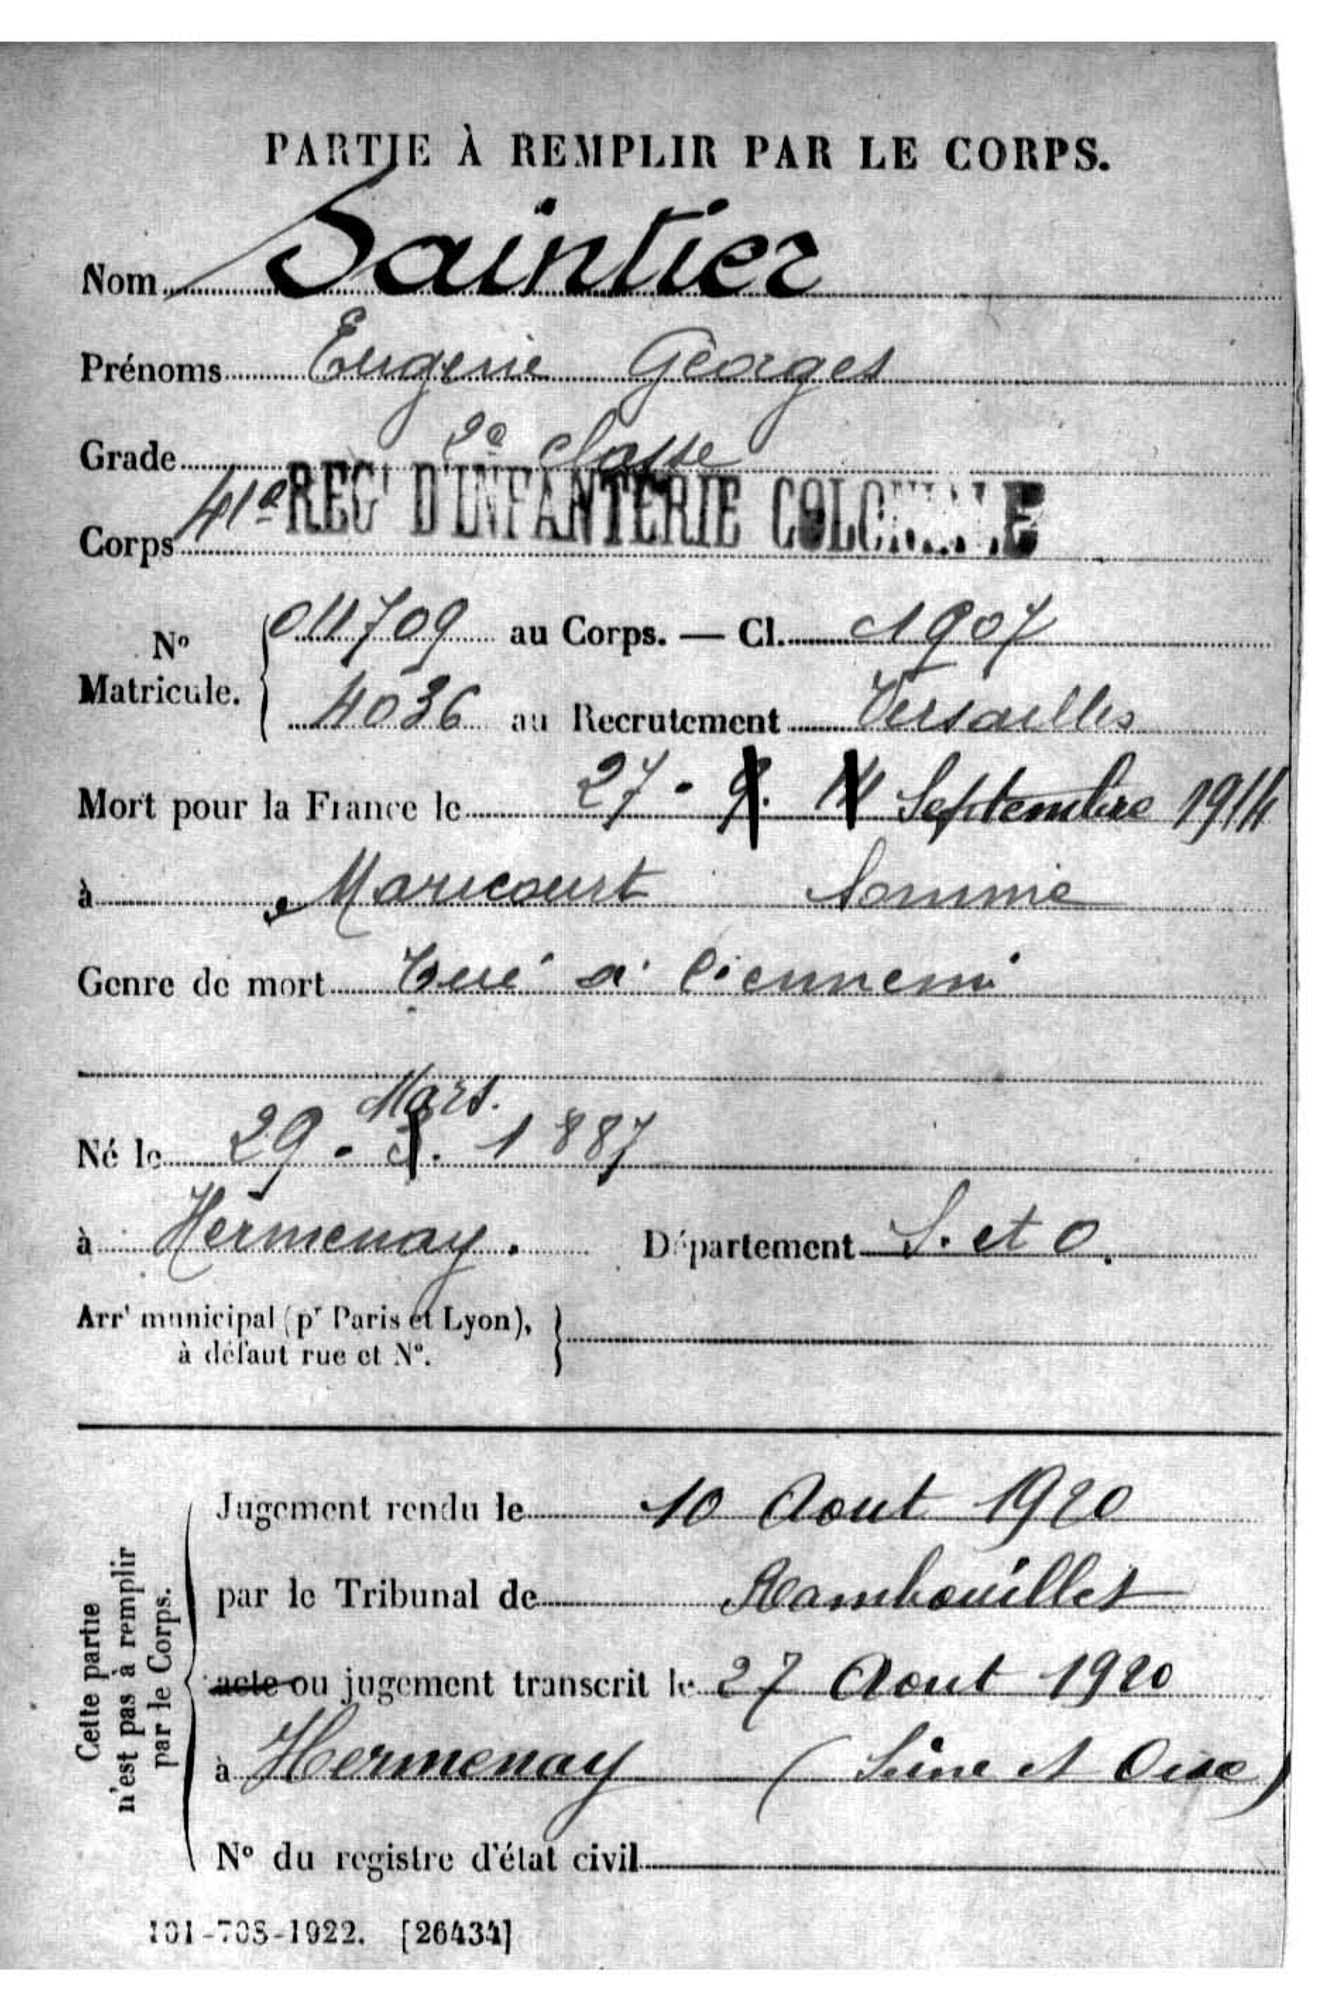 PARTIE À REMPLIR PAR LE CORPS.
Nom Saintier
Prénoms Eugène Georges
Grade 2e classe
Corps 41e REGt D'INFANTERIE COLONIALE
No Matricule. 011709 au Corps. — Cl. 1907
4036 au Recrutement Versailles
Mort pour la France le 27 - 9. 14 Septembre 1914
à Maricourt Somme
Genre de mort Tué à l'ennemi
Mars.
Né le 29 - 3. 1887
à Hermenay. Département S. et O.
Arrt municipal (pr Paris et Lyon),
à défaut rue et No.
Cette partie
n'est pas à remplir
par le Corps.
Jugement rendu le 10 Aout 1920
par le Tribunal de Rambouillet
acte ou jugement transcrit le 27 Aout 1920
à Hermenay (Seine et Oise)
No du registre d'état civil
101-708-1922. [26434]